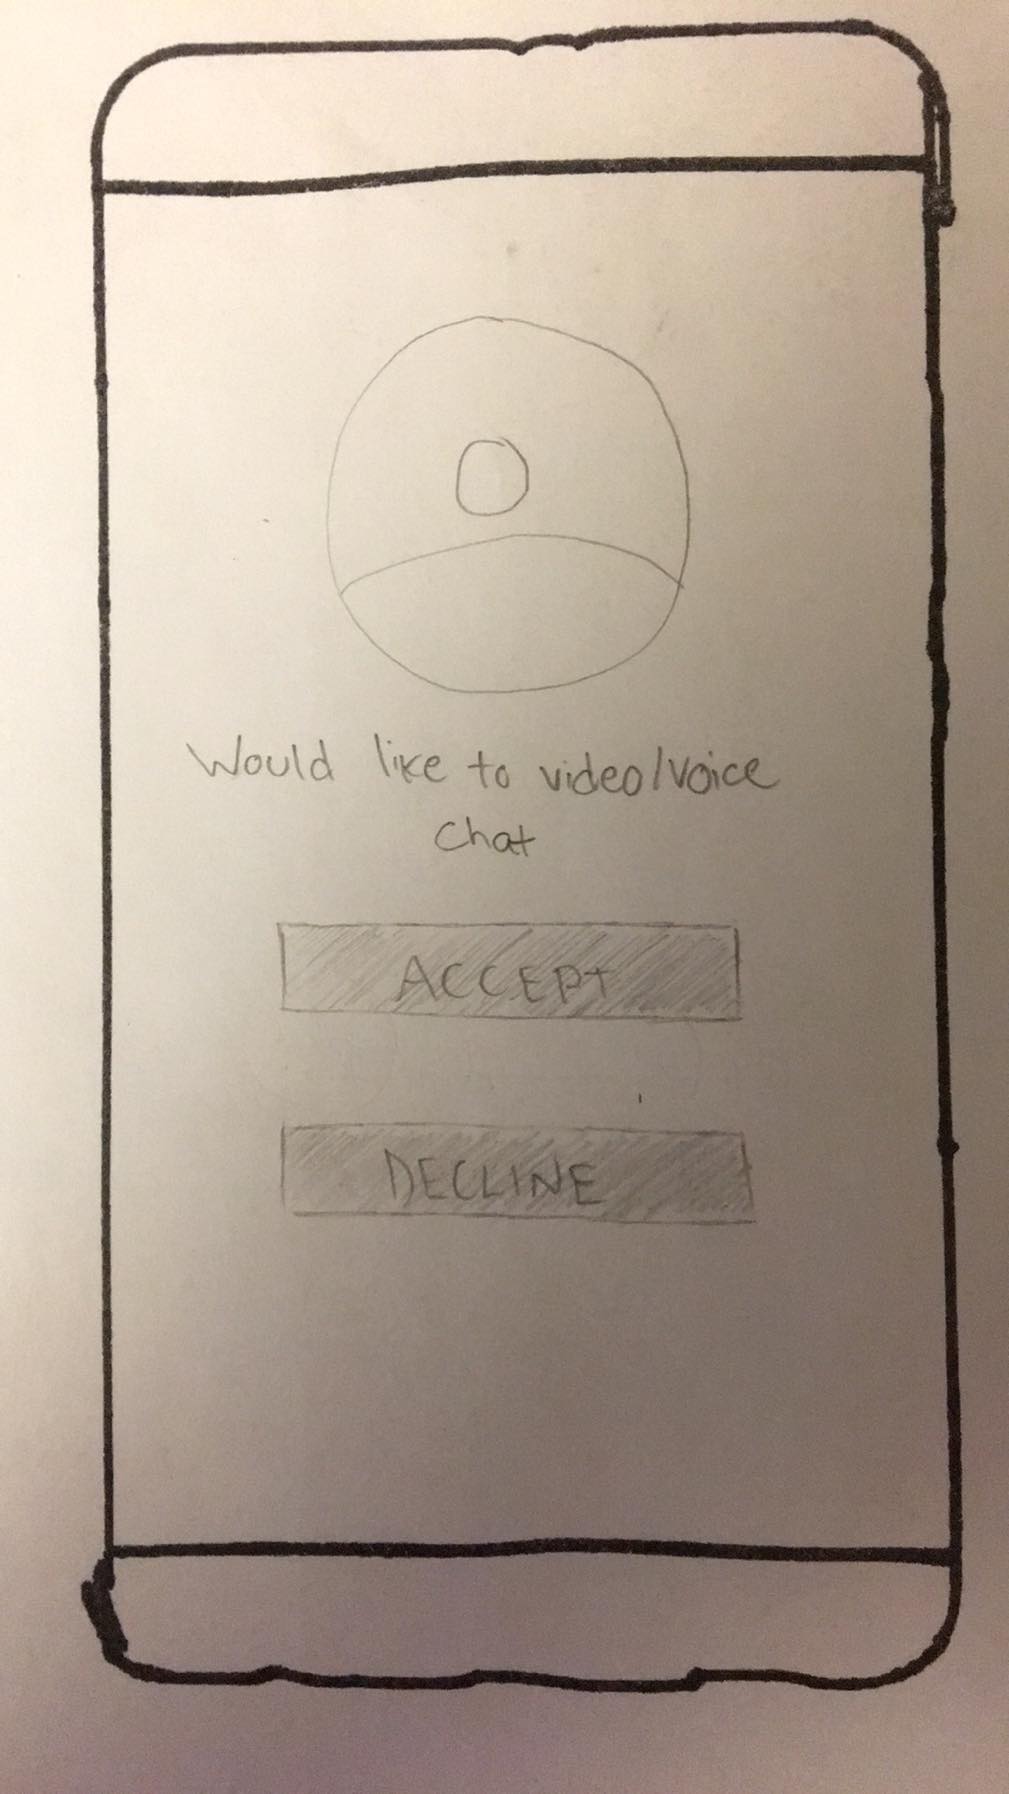 Would like to video/voice
Chat
ACCEPT
DECLINE